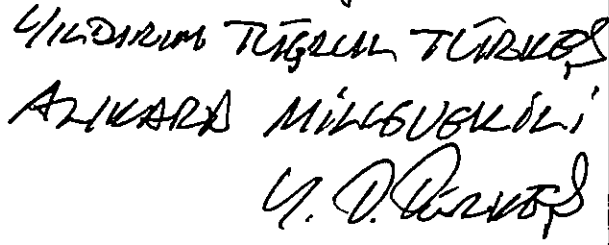 YILDIRIM TUĞRUL TÜRKEŞ
ANKARA MİLLETVEKİLİ
Y. D. Türkeş